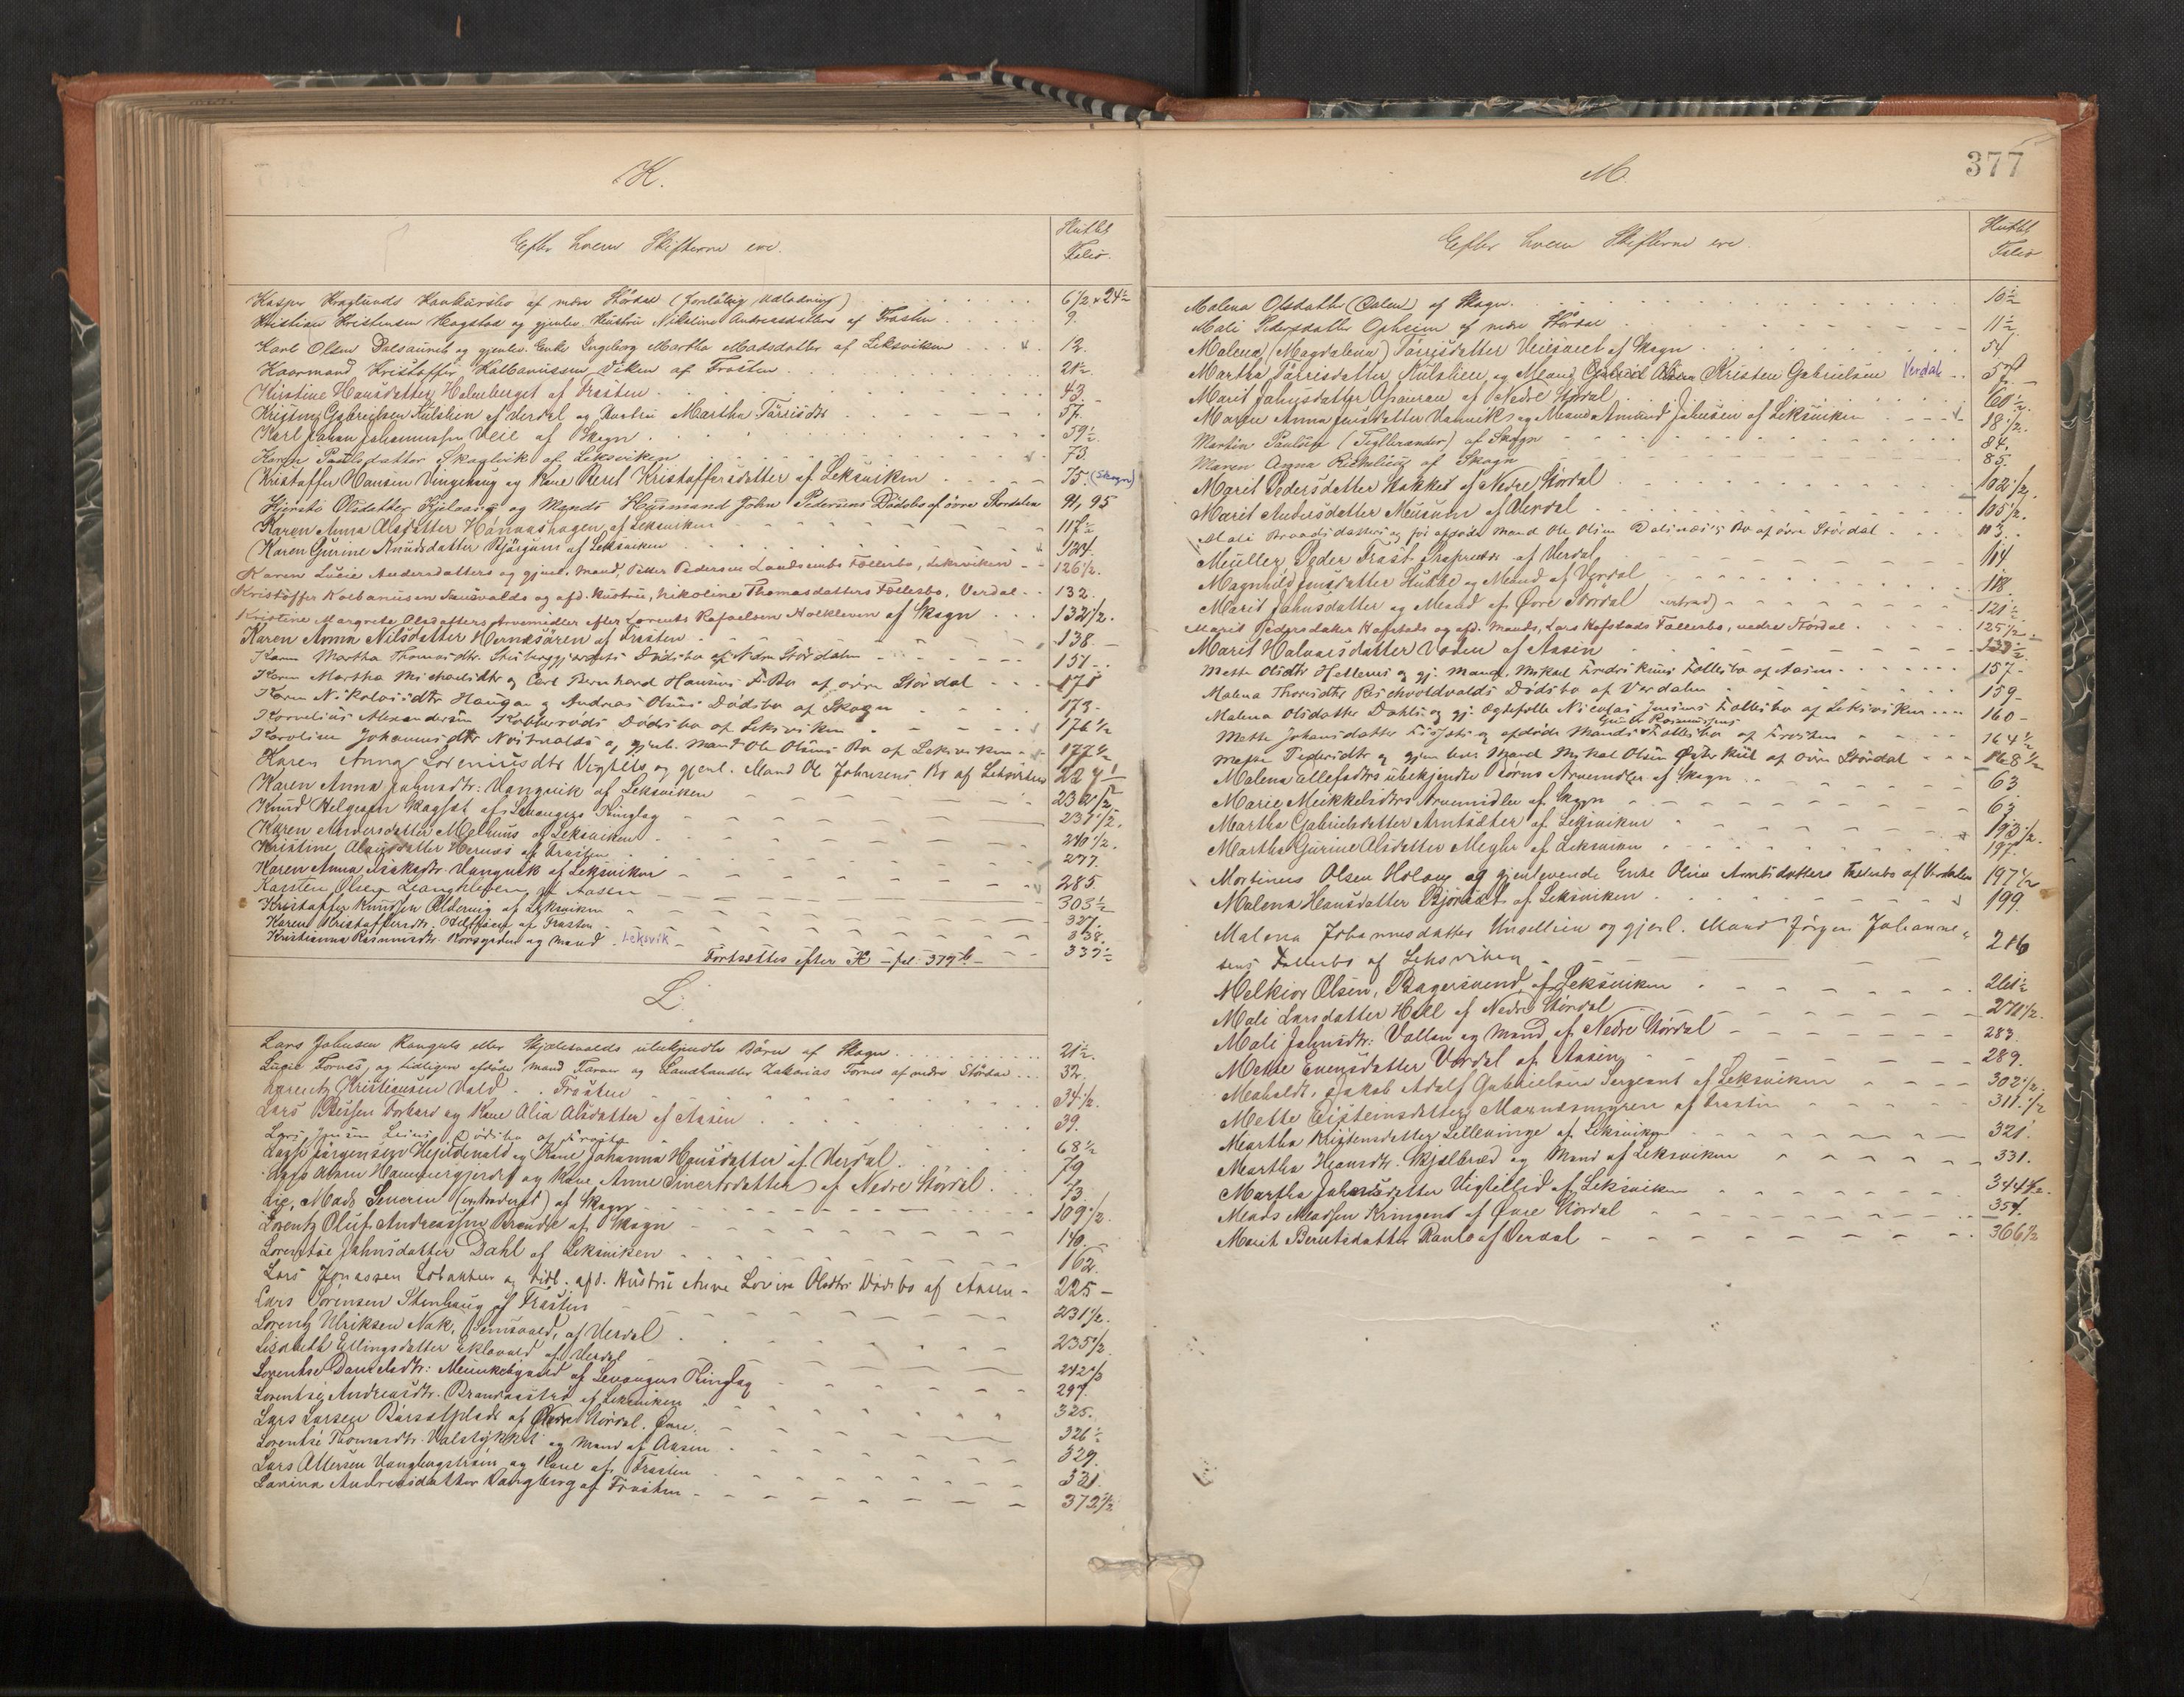 K.
Efter hvem Skifterne ere.
Sluttet
Folio.
Kasper Kraglunds Konkursbo af nedre Stördal (foreløbig Udlodning) 6½ & 24½
Kristian Kristensen Hogstad og gjenlev. Hustru Nikoline Andreasdatters af Frosten 9.
Karl Olsen Dalsaunet og gjenlev. Enke Ingeborg Martha Madsdatter af Leksviken 12.
Kaarmand Kristoffer Kolbanussen Viken af Frosten 21½.
Kirstine Hansdatter Holmberget af Frosten 43.
Kristen Gabrielsen Kulslien af Verdal og Hustru Martha Tørrisdtr 57.
Karl Johan Johannessen Veie af Skogn 59½.
Karen Paulsdatter Skaglvik af Leksviken 73
Kristoffer Hansen Vingehaug og Kone Beret Kristoffersdatter af Leksviken 75. (Skogn)
Kjersti Olsdatter Kjelaas og Mands Husmand John Pedersens Dödsbo af övre Stördalen 91, 95
Karen Anna Olsdatter Hanaashagen af Leksviken 117½
Karen Gurine Knudsdatter Bjørgum af Leksviken 124.
Karen Lucie Andersdatters og gjenl. Mand, Petter Pedersen Landsems Fællesbo, Leksviken 126½.
Kristoffer Kolbanusen Sundvalds og afd. Hustru, Nikoline Thomasdatters Fællesbo, Verdal 132.
Kristine Margrete Olsdatters Arvemidler efter Lorents Rafaelsen Holkleven af Skogn 132½.
Karen Anna Nilsdatter Hernæsøren af Frosten 138.
Karen Martha Thomasdtr. Dødsbo af Nedre Stördalen 151.
Karen Martha Michaelsdtr og Carl Bernhard Hansens F.Bo af övre Stördal 171
Karen Nikolaisdtr Haugan og Andreas Olsens Dödsbo af Skogn 173.
Kornelius Alexandersen Kobberröds Dödsbo af Leksviken 176½
Karoline Johannesdtr og gjenl. Mand Ole Olsens Bo af Leksviken 177½
Karen Anna Lorentsdtr Vigtils og gjenl. Mand Ole Johnsens Bo af Leksviken 224½
Karen Anna Johnsdtr: Vangvik af Leksviken 232½
Knud Helgesen Skagset af Levangers Thinglag 237½.
Karen Andersdatter Melhuus af Leksviken 240½.
Kristine Olausdatter Hernes af Frosten 277.
Karen Anna Isaksdtr. Vangvik af Leksviken 285.
Karsten Olsen Leangkleven af Aasen 303½
Kristoffer Knudsen Oldervig af Leksviken 327.
Karen Kristoffersdtr. af Frosten 338.
Kristianna Rasmusdtr. Korsgaden og Mand. Leksvik 339½
Fortsættes efter K – fol. 379 b –
L.
Lars Johnsen Ranguls eller Skjelsvalds ubekjendte Børn af Skogn 21½.
Lucie Fornes, og tidligere afdøde Mand Farver og Landhandler Zakarias Fornes af nedre Stördal 32.
Lorentz Kristiansen Vold .. Frosten 34½.
Lars Olessen Vordal og Kone Olia Olsdatter af Aasen 39.
Lars Jensen Leines Dødsbo af Frosta 68½
Lasse Jørgensen Hejeldevald og Kone Johanna Hansdatter af Verdal. 79
Lars Olsen Hammergjerdet og Kone Anne Sivertsdatter af Nedre Stördal. 73.
Lie, Mads Severin (extraderet) af Skogn 109½.
Lorentz Oluf Andreassen Brandt af Skogn 140.
Lorentse Johnsdatter Dahl af Leksviken 162.
Lars Jonassen Lobakken og tidl. afd. Hustru Anne Lovise Olsdtr Dödsbo af Aasen 225
Lars Sørensen Stenhaug af Frosten 231½.
Lorentz Ulriksen Nak, Semsvald, af Verdal 235½.
Lisabeth Ellingsdatter Eklovald af Verdal 242½
Lorentse Danielsdtr: Munkebyvald af Levangers Thinglag 297.
Lorentse Andreasdtr. Brandaasted af Leksviken 325.
Lars Larsen Börsetplads af Øvre Stördal. Øvre. 326½
Lorentse Thomasdtr. Valstykket og Mand af Aasen 329.
Lars Ottersen Vangbergstrøm og Kone af Frosten 331.
Lorina Andreasdatter Vangberg af Frosten 372½
M.
377
Efter hvem Skifterne ere.
Sluttet
Folio
Malena Olsdatter (Oalen) af Skogn. 10½
Mali Pedersdatter Opheim af nedre Stördal 11½
Malena (Magdalena) Tørrisdatter Veiesaaet af Skogn 54
Martha Tørrisdatter Kulslien og Mand Kristen Gabrielsen Verdal 57
Marit Johnsdatter Opauran af Nedre Stördal 60½.
Maren Anna Jensdatter Vannvik og Mand Amund Johnsen af Leksviken 18½.
Martin Paulsen (Teglbrænder) af Skogn 84.
Maren Anna Rickelieng af Skogn 85.
Marit Pedersdatter Hokket af Nedre Stördal 102½
Marit Andersdatter Musum af Verdal 105½.
Mali Braadsdatters og før afdøde Mand Ole Olsen Dalsaas's Bo af övre Stördal 113.
Müller, Peder Frost, Proprietær af Verdal 114
Magnhild Jensdatter Stubbe og Mand af Verdal 118.
Marit Johnsdatter og Mand af Övre Stördal (extrad) 121½
Marit Pedersdatter Hofstads og afd. Mands, Lars Hofstads Fællesbo, nedre Stördal 125½
Marit Halvorsdatter Voden af Aasen 139½
Mette Olsdtr Hellems og gj. Mand, Mikal Fredriksens Fællesbo af Aasen 157
Malena Thorisdtr Bjechvoldvalds Dödsbo af Verdalen 159
Malena Olsdatter Dahls og gj. Ægtefælle Nicolai Jensens Fællesbo af Leksviken 160
Mette Johansdatter og afdøde Mands Gunder Rasmussens Fællesbo af Frosten 164½
Mette Pedersdtr og gjen lev. Mand Mykal Olsen Øfsterkil af Övre Stördal 168½
Malena Ellefsdtrs ubekjendte Børns Arvemidler af Skogn 63
Marie Meikkelsdtrs Arvemidler af Skogn 63
Martha Gabrielsdatter Arntsæter af Leksviken 193½.
Martha Gurine Olsdatter Myhr af Leksviken 197.
Mortinus Olsen Holaug og gjenlevende Enke Oline Arntsdatters Fællesbo af Verdalen 197½
Malena Hansdatter Bjørnaas af Leksviken 199.
Malena Johannesdatter Unsellien og gjenl. Mand Jörgen Johanne-
sens Fællesbo af Leksviken 216
Melkior Olsen, Bagersvend, af Leksviken 261½
Mali Larsdatter Hell af Nedre Stördal 271½.
Mali Johnsdtr: Vollan og Mand af Nedre Stördal 283.
Mette Evensdatter Vordal af Aasen 289.
Mebaldt, Jakob Adolf Gabrielsen Sergeant af Leksviken 302½.
Mette Eisteinsdatter Mannsmyren af Frosten 311½
Martha Kristensdatter Lillevinge af Leksviken 321.
Martha Hansdtr. Skjelbred og Mand af Leksviken 331.
Martha Johansdatter Vigtillid af Leksviken 344½.
Mads Madsen Kringens af Övre Stördal 354.
Marit Berntsdatter Ranlo af Verdal 366½